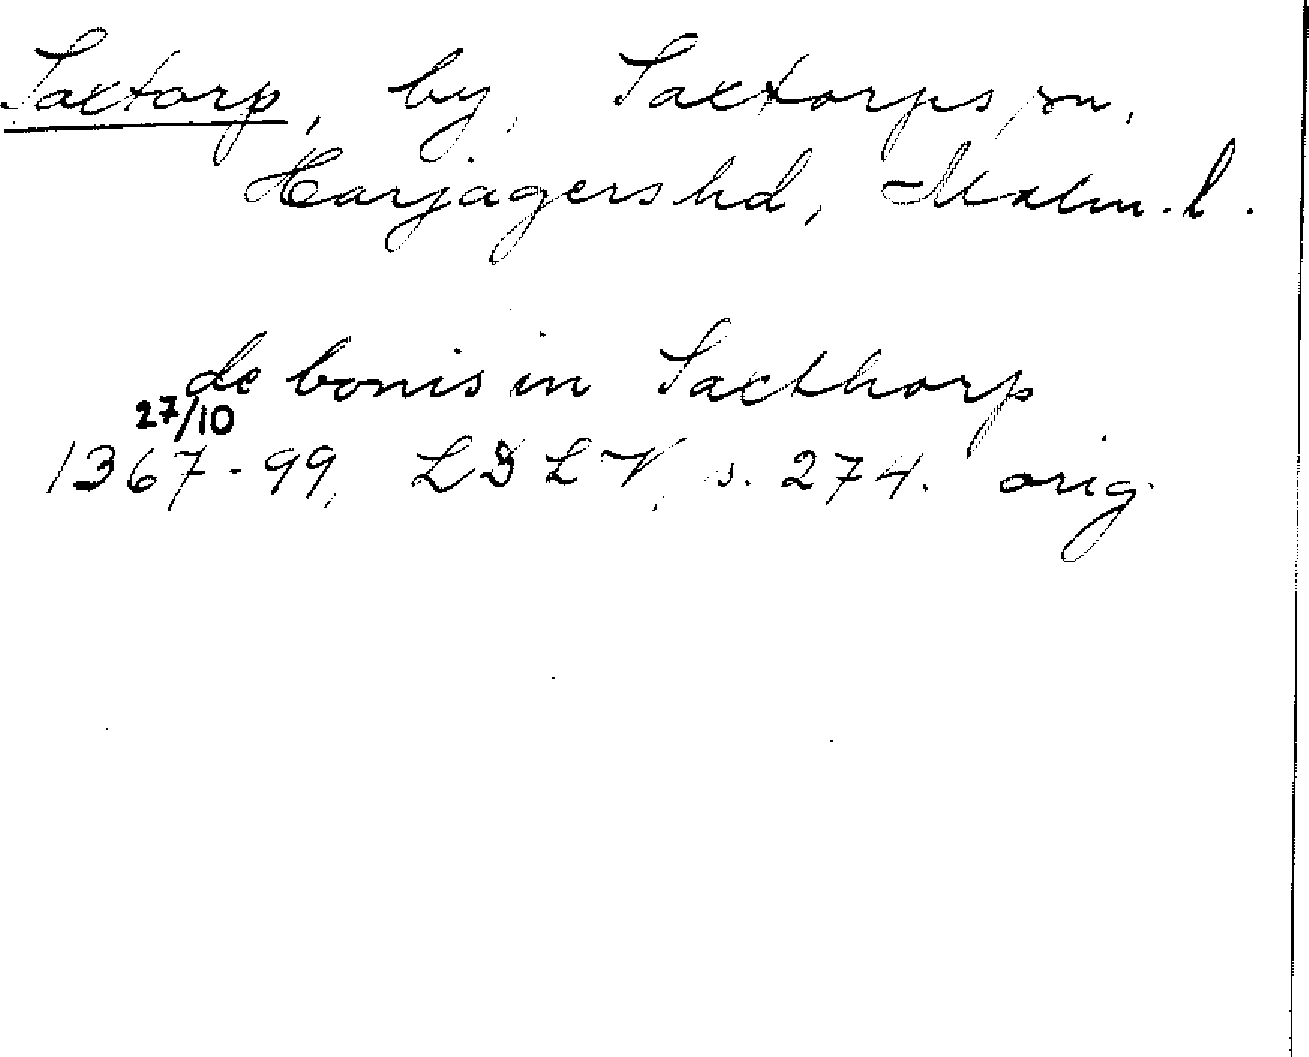 Saxtorp, by, Saxtorps sn,
Harjagers hd, Malm. l.
de bonis in Saxthorp
27/10
1367-99, LDL V, s. 274. orig.